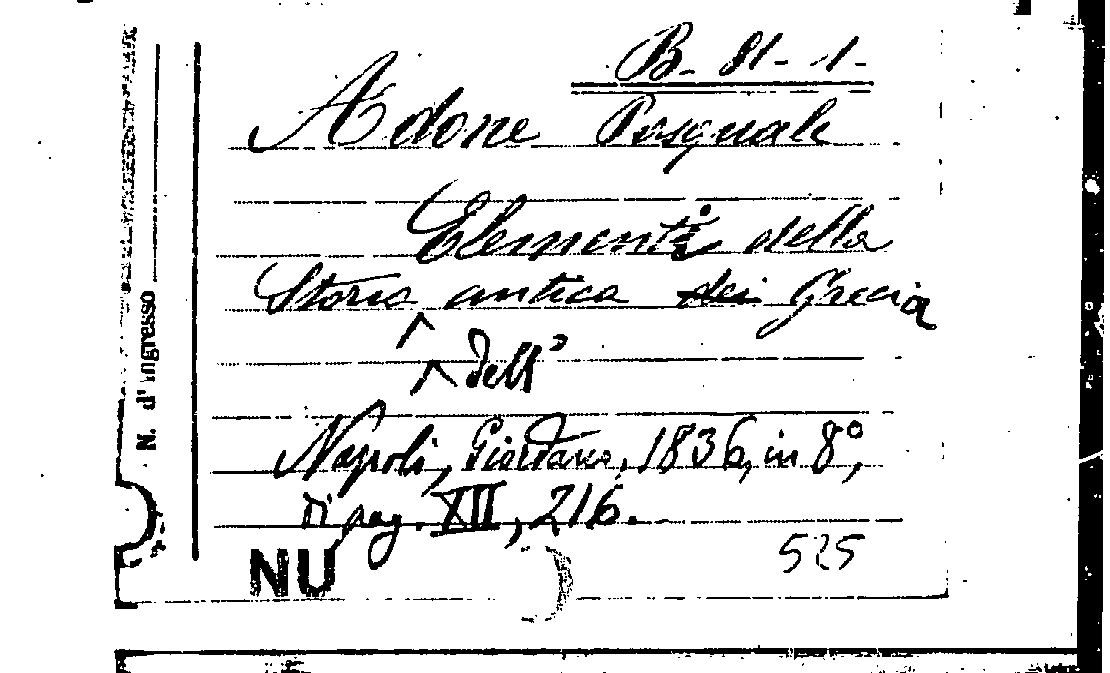 B. 81. 1.
Adone Pasquale
Elementi della
Storia antica dei Grecia
dell'
Napoli, Giordano, 1836, in 8°,
di pag. XII, 216.
525
NU
N. d'ingresso